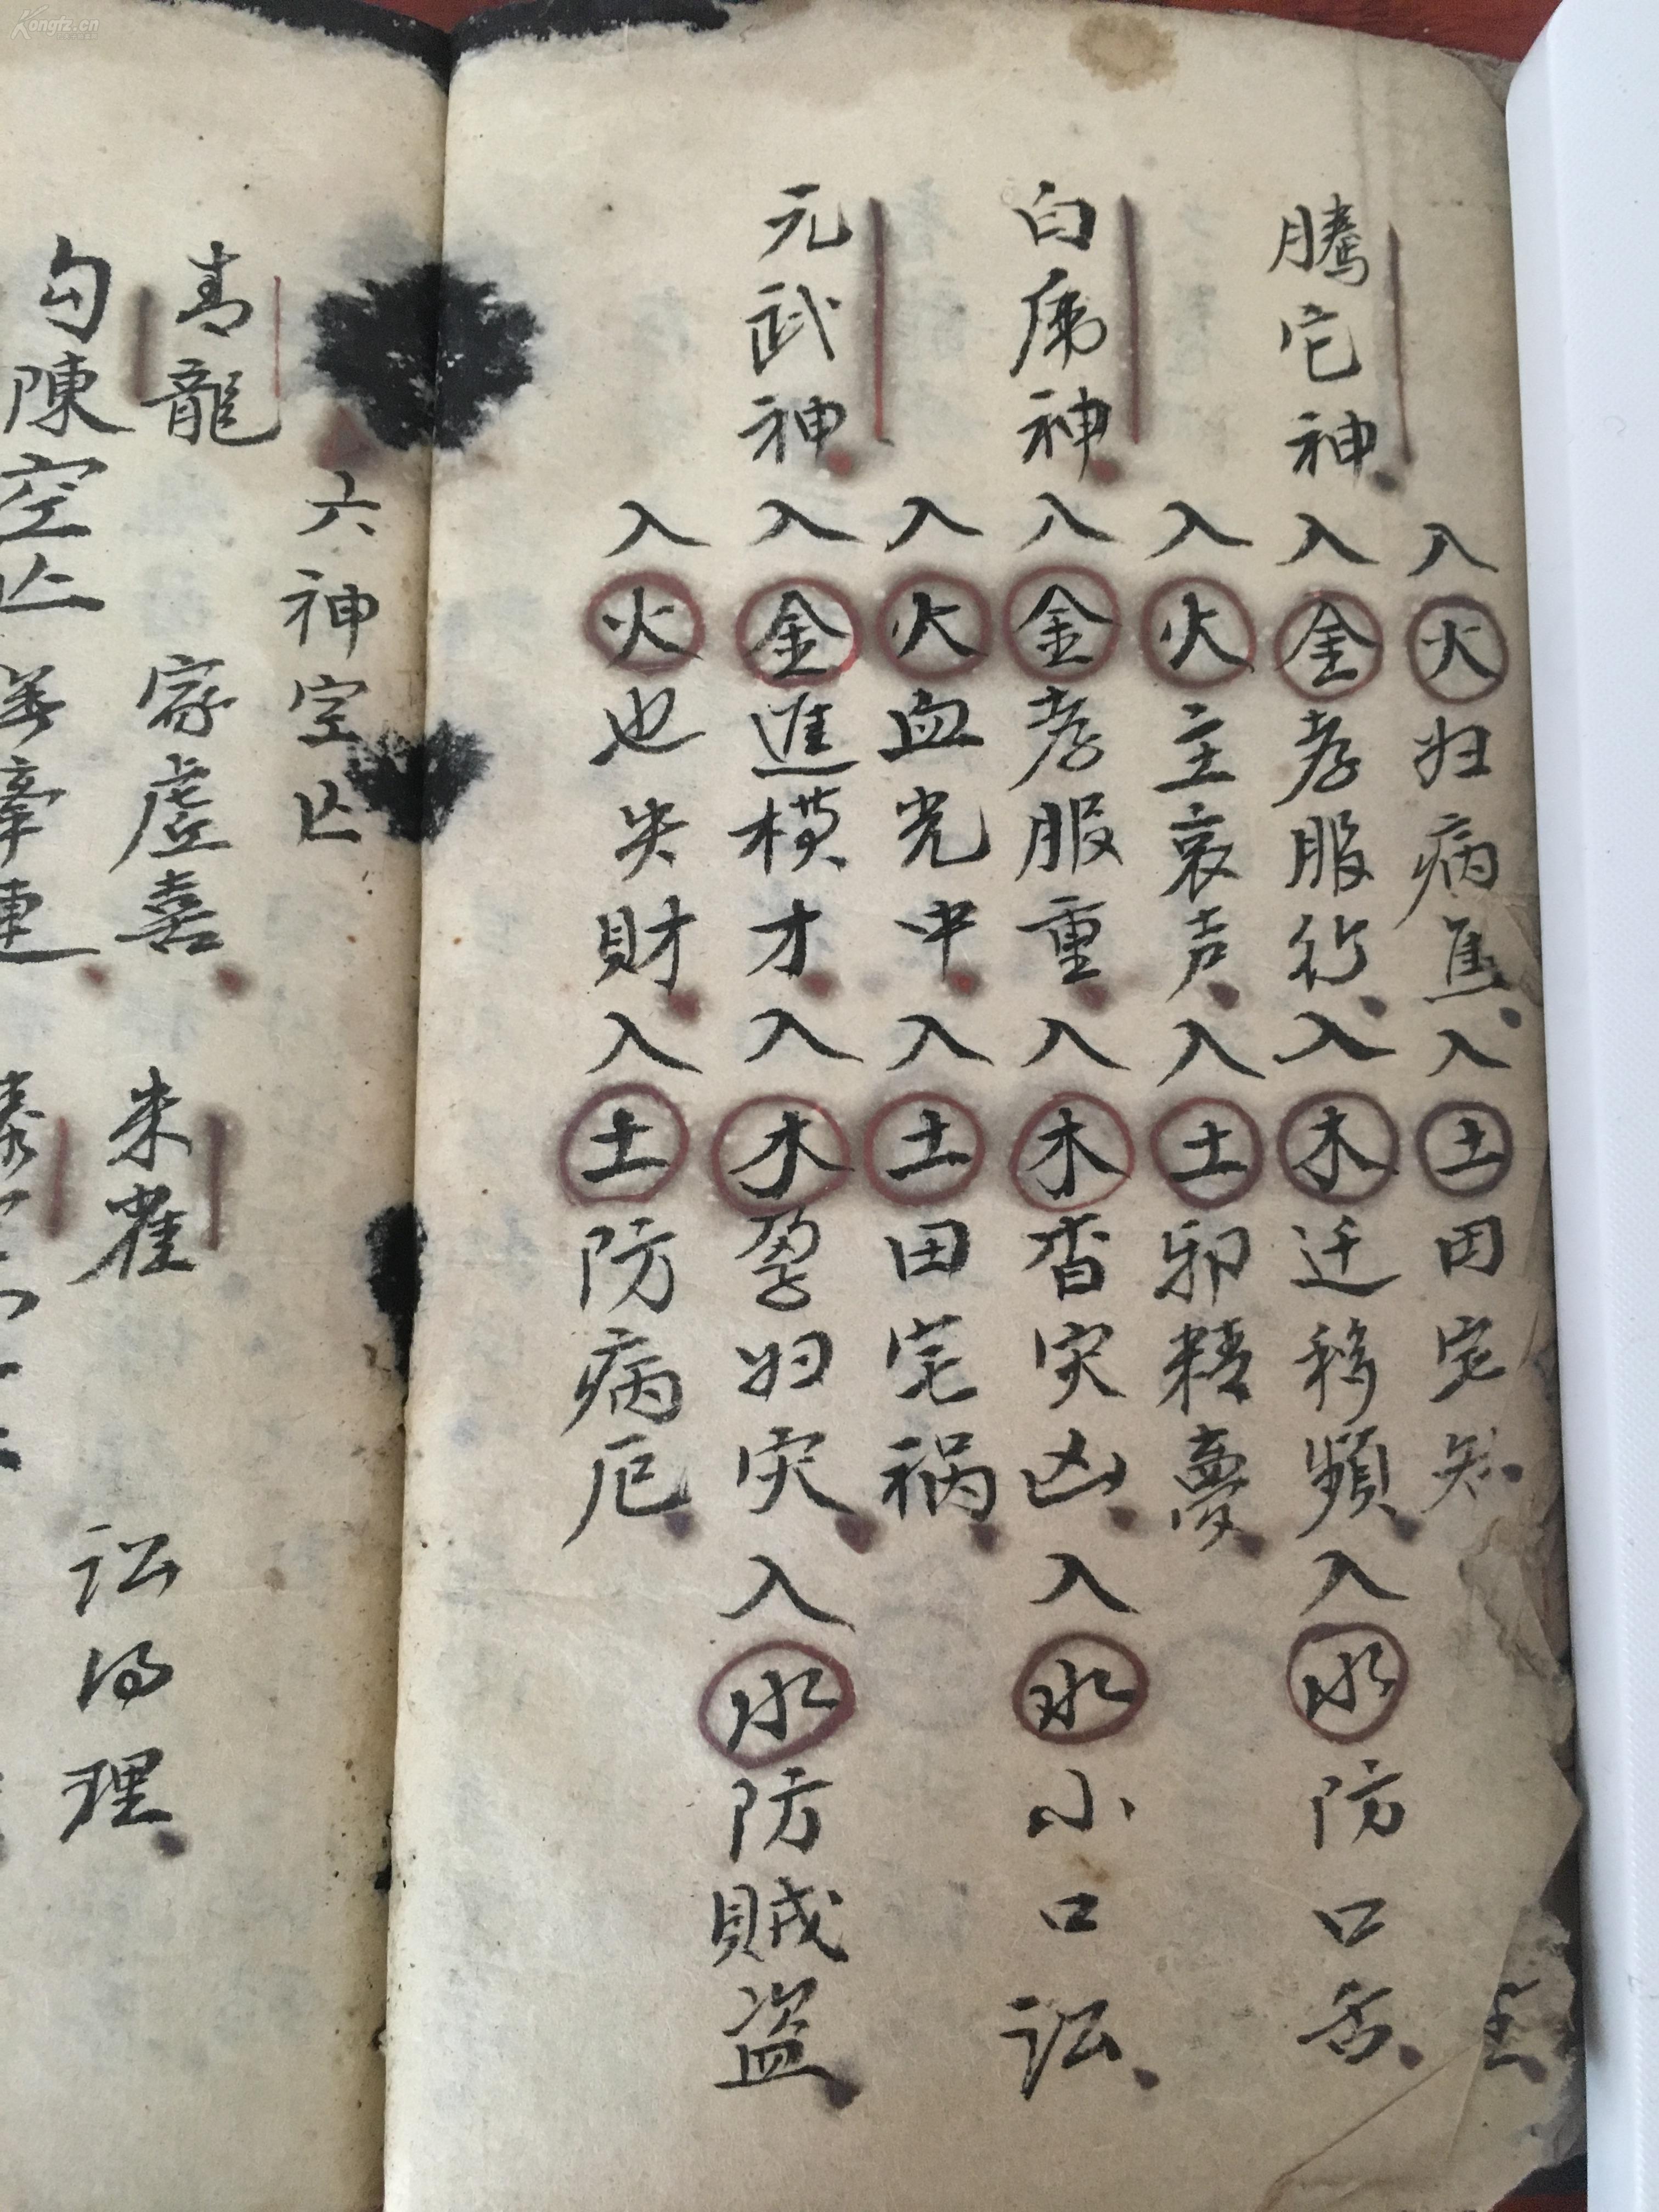 入火妇病焦入土田宅知
騰它神入金孝服行入木迁移頻入水防口舌
入火主哀声入土邪精夢
白虎神入金孝服重入木杳灾凶入水小口訟
入火血光中入土田宅祸
元武神入金進横才入木孕妇灾入水防賊盗
入火也失財入土防病厄
六神空亡
青龍 家虚喜
朱雀 訟得理
勾陳空亡
Kongfz.cn